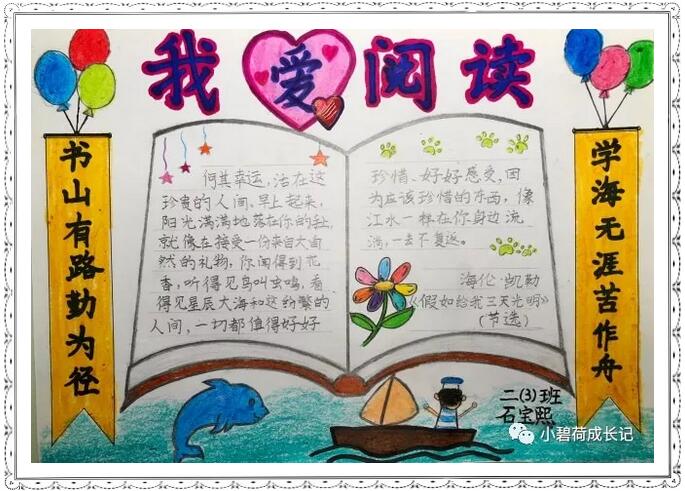 我爱阅读
书山有路勤为径
何其幸运,活在这
珍贵的人间。早上起来,
阳光满满地落在你的脸,
就像在接受一份来自大自
然的礼物,你闻得到花
香,听得见鸟叫虫鸣,看
得见星辰大海和这纷繁的
人间,一切都值得好好
珍惜、好好感受,因
为应该珍惜的东西,像
江水一样在你身边流
淌,一去不复返。
海伦·凯勒
《假如给我三天光明》
(节选)
学海无涯苦作舟
二(3)班
石宝熙
小碧荷成长记